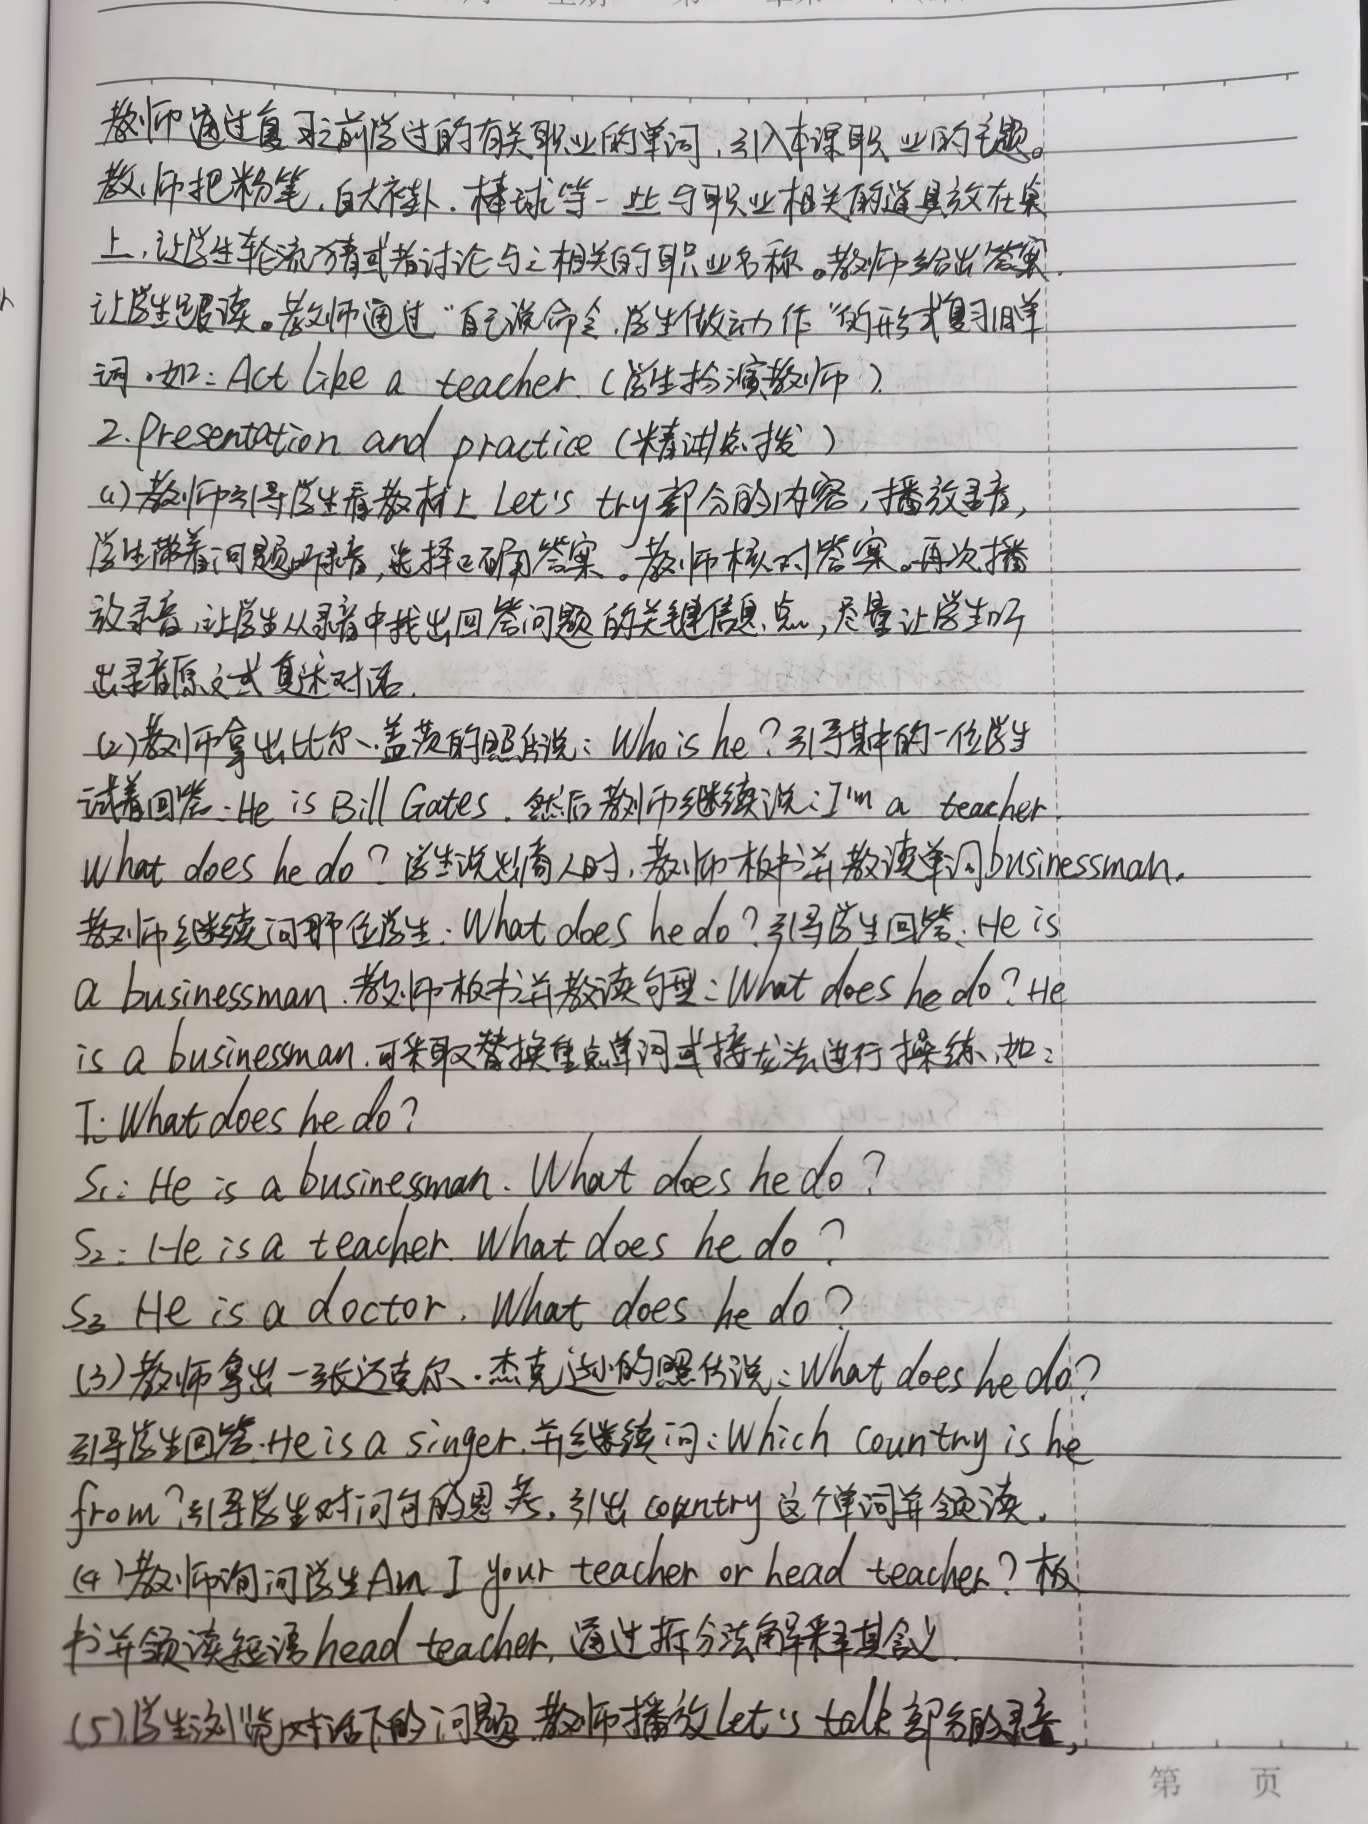 教师通过复习之前学过的有关职业的单词，引入本课职业的主题。
教师把粉笔、白大褂、棒球等一些与职业相关的道具放在桌
上，让学生轮流猜或者讨论与之相关的职业名称。教师给出答案，
让学生跟读。教师通过“自己说命令，学生做动作”的形式复习旧单
词。如：Act like a teacher.（学生扮演教师）
2. Presentation and practice（精讲点拨）
(1)教师引导学生看教材上 Let's try 部分的内容，播放录音，
学生带着问题听录音，选择正确答案。教师核对答案。再次播
放录音，让学生从录音中找出回答问题的关键信息点，尽量让学生听
出录音原文或复述对话。
(2)教师拿出比尔·盖茨的照片说：Who is he？引导其中的一位学生
试着回答：He is Bill Gates. 然后教师继续说：I'm a teacher.
What does he do？学生说出商人时，教师板书并教读单词businessman.
教师继续问那位学生：What does he do？引导学生回答：He is
a businessman. 教师板书并教读句型：What does he do？He
is a businessman. 可采取替换重点单词或接龙法进行操练，如：
T: What does he do？
S1: He is a businessman. What does he do？
S2: He is a teacher. What does he do？
S3 He is a doctor. What does he do？
(3)教师拿出一张迈克尔·杰克逊的照片说：What does he do？
引导学生回答：He is a singer. 并继续问：Which country is he
from？引导学生对问句的思考，引出 country 这个单词并领读。
(4)教师询问学生Am I your teacher or head teacher？板
书并领读短语head teacher, 通过拆分法解释其含义.
(5)学生浏览对话下的问题. 教师播放Let's talk 部分的录音，
第 页